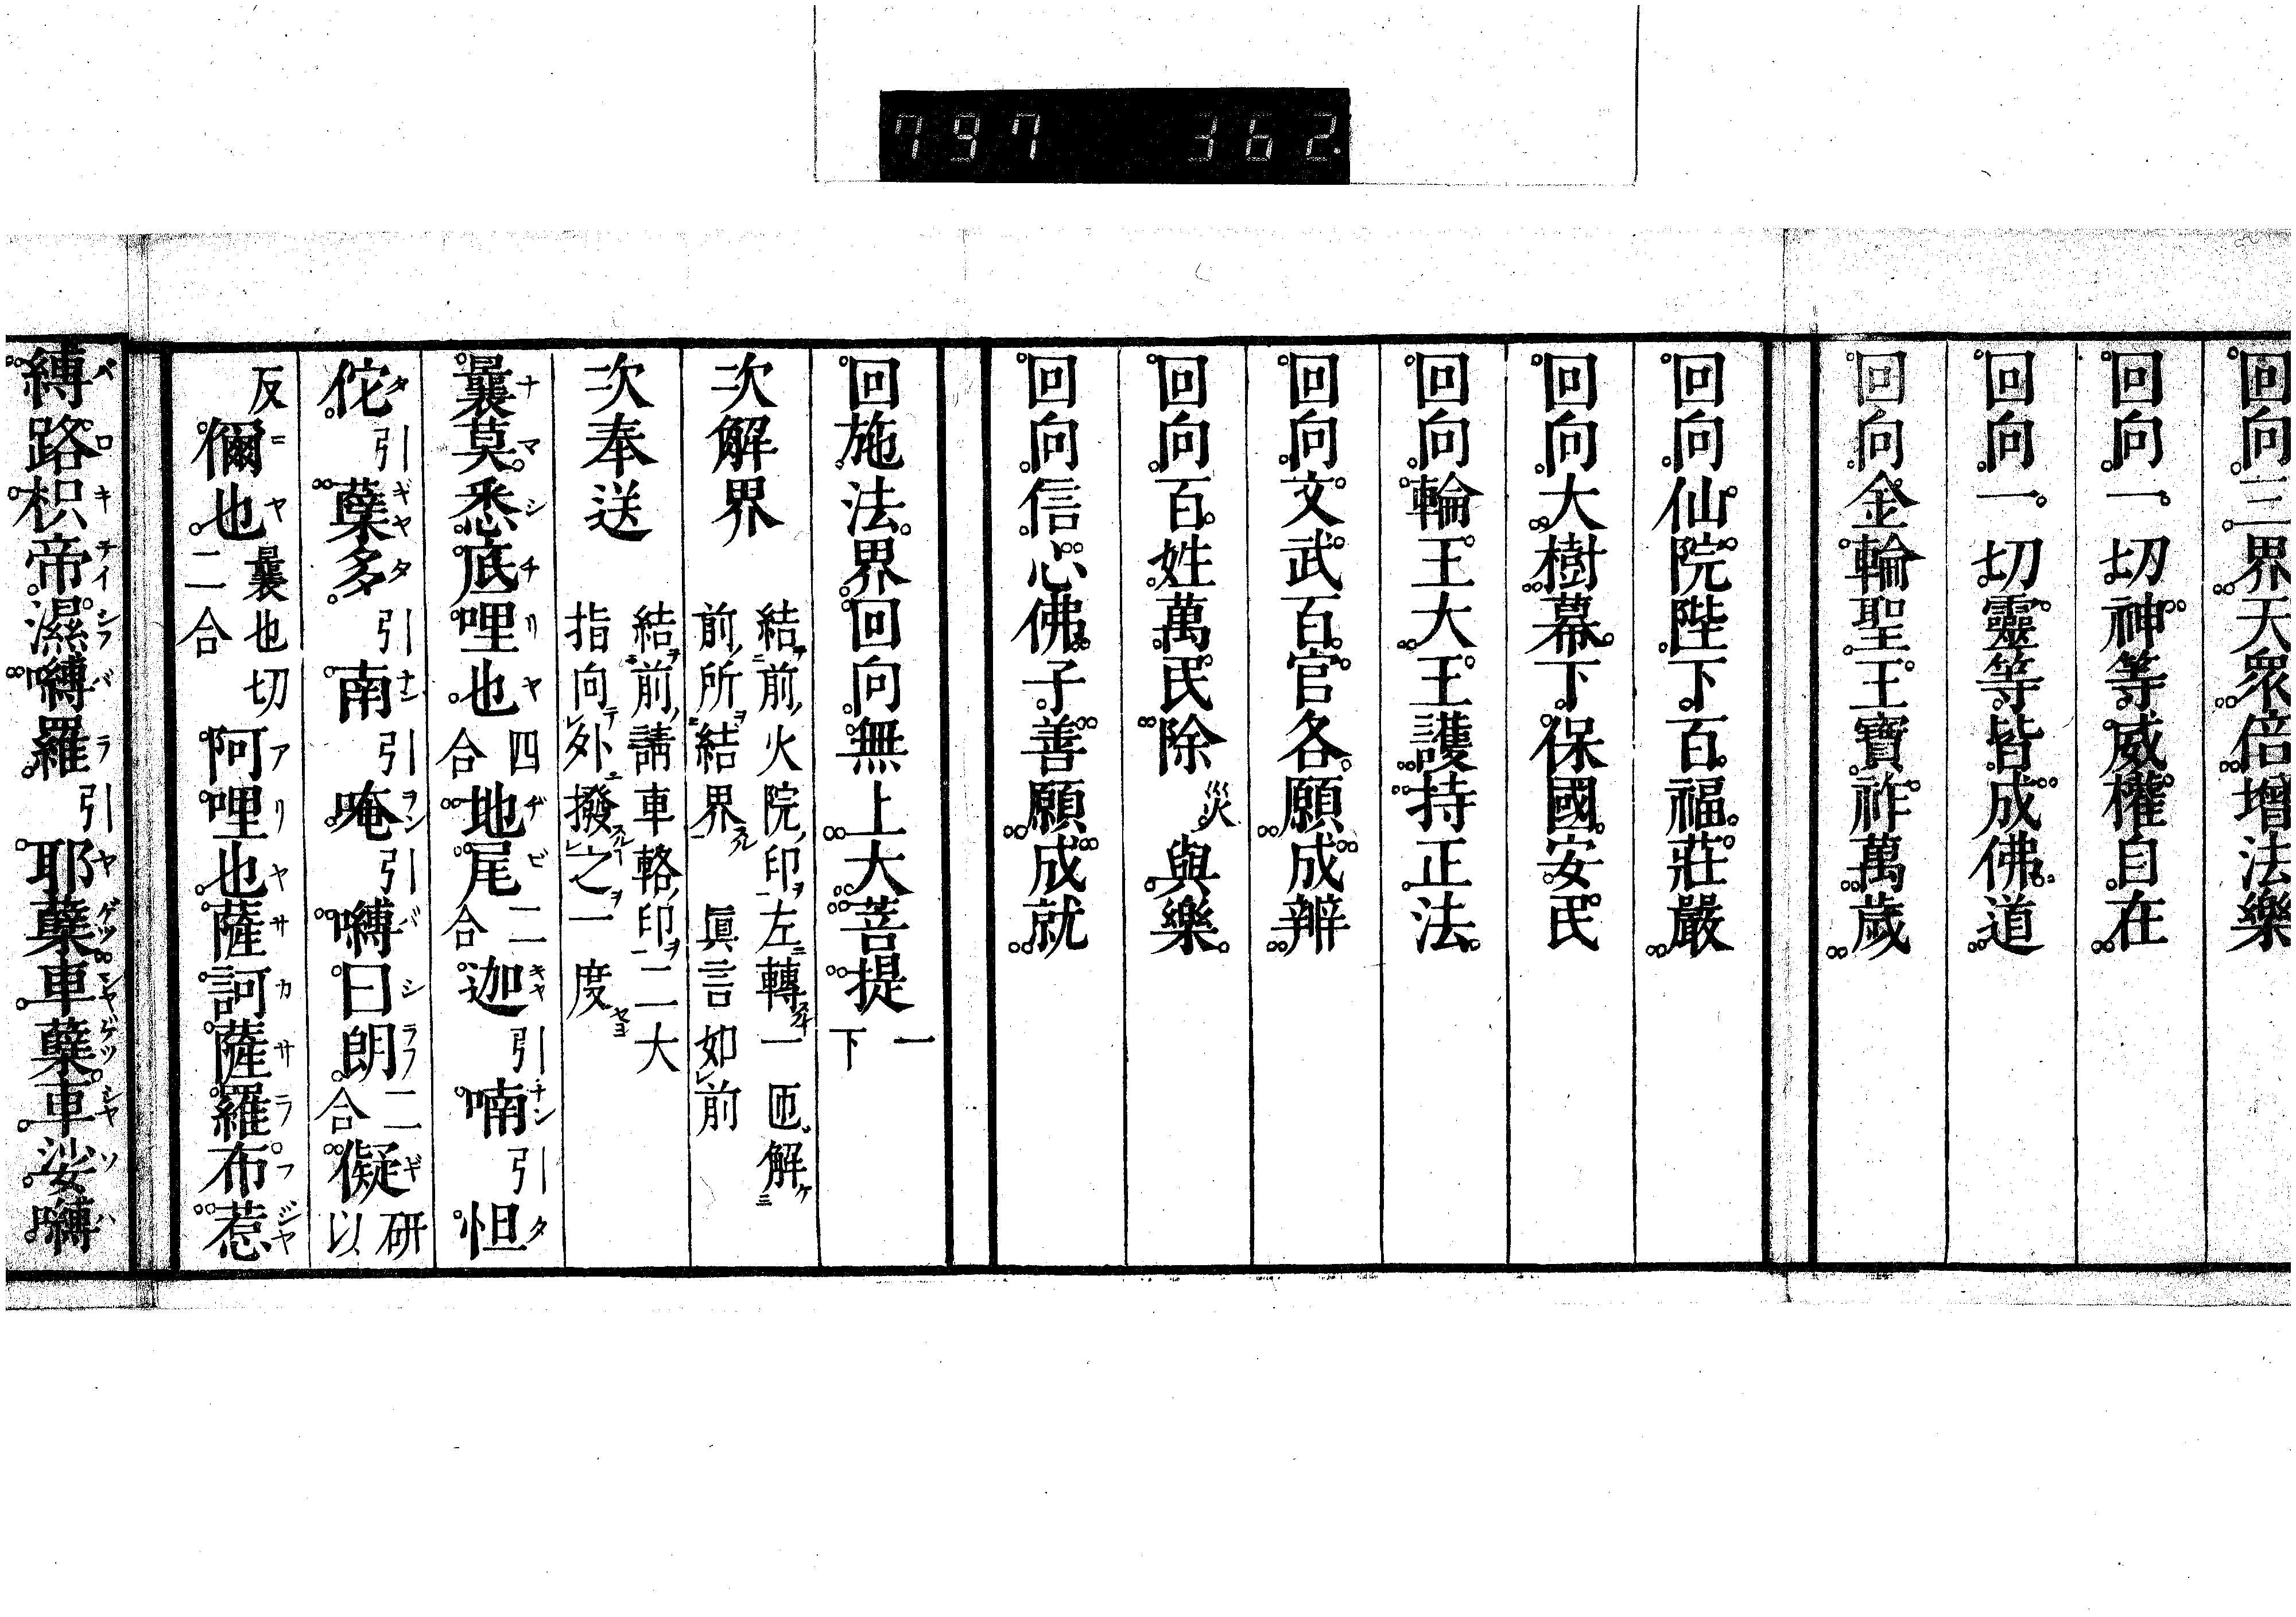 797 362
回向三界天衆倍增法樂
回向一切神等威權自在
回向一切靈等皆成佛道
回向金輪聖王寶祚萬歲
回向仙院陛下百福莊嚴
回向大樹幕下保國安民
回向輪王大王護持正法
回向文武百官各願成辨
回向百姓萬民除災與樂
回向信心佛子善願成就
回施法界回向無上大菩提 一下
次解界 結前火院印左轉一匝解前所結界 眞言如前
次奉送 結前請車輅印二大指向外撥之一度
曩莫悉底哩也四合地尾二合迦引喃引怛
佗引蘖多引南引唵引嚩日朗二合儗研以
反儞也曩也切二合阿哩也薩訶薩羅布惹
縛路枳帝濕嚩羅引耶蘖車蘖車娑嚩